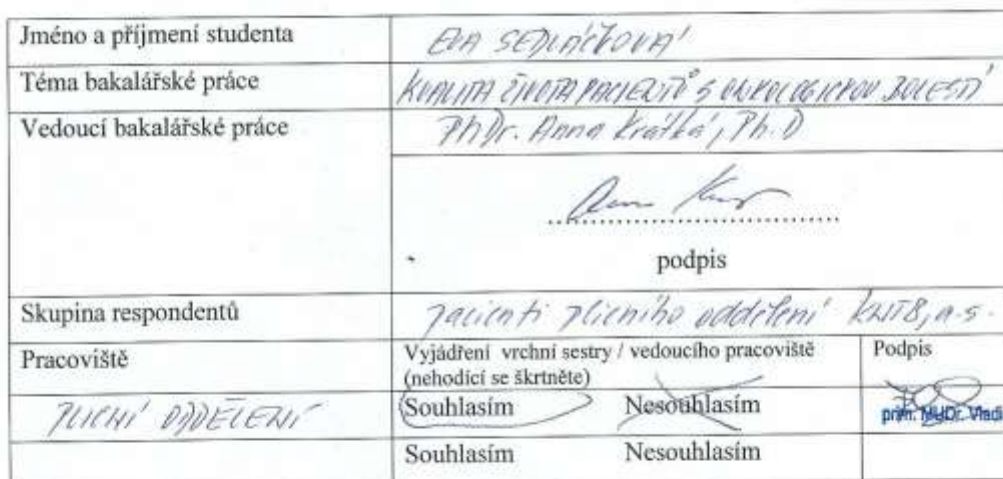 Jméno a příjmení studenta EVA SEDLÁČKOVÁ
Téma bakalářské práce KVALITA ŽIVOTA PACIENTŮ S ONKOLOGICKOU BOLESTÍ
Vedoucí bakalářské práce PhDr. Anna Krátká, Ph.D
podpis
Skupina respondentů pacienti plicního oddělení KNTB, a.s.
Pracoviště Vyjádření vrchní sestry / vedoucího pracoviště Podpis
(nehodící se škrtněte)
PLICNÍ ODDĚLENÍ Souhlasím Nesouhlasím prim. MUDr. Vladi
Souhlasím Nesouhlasím